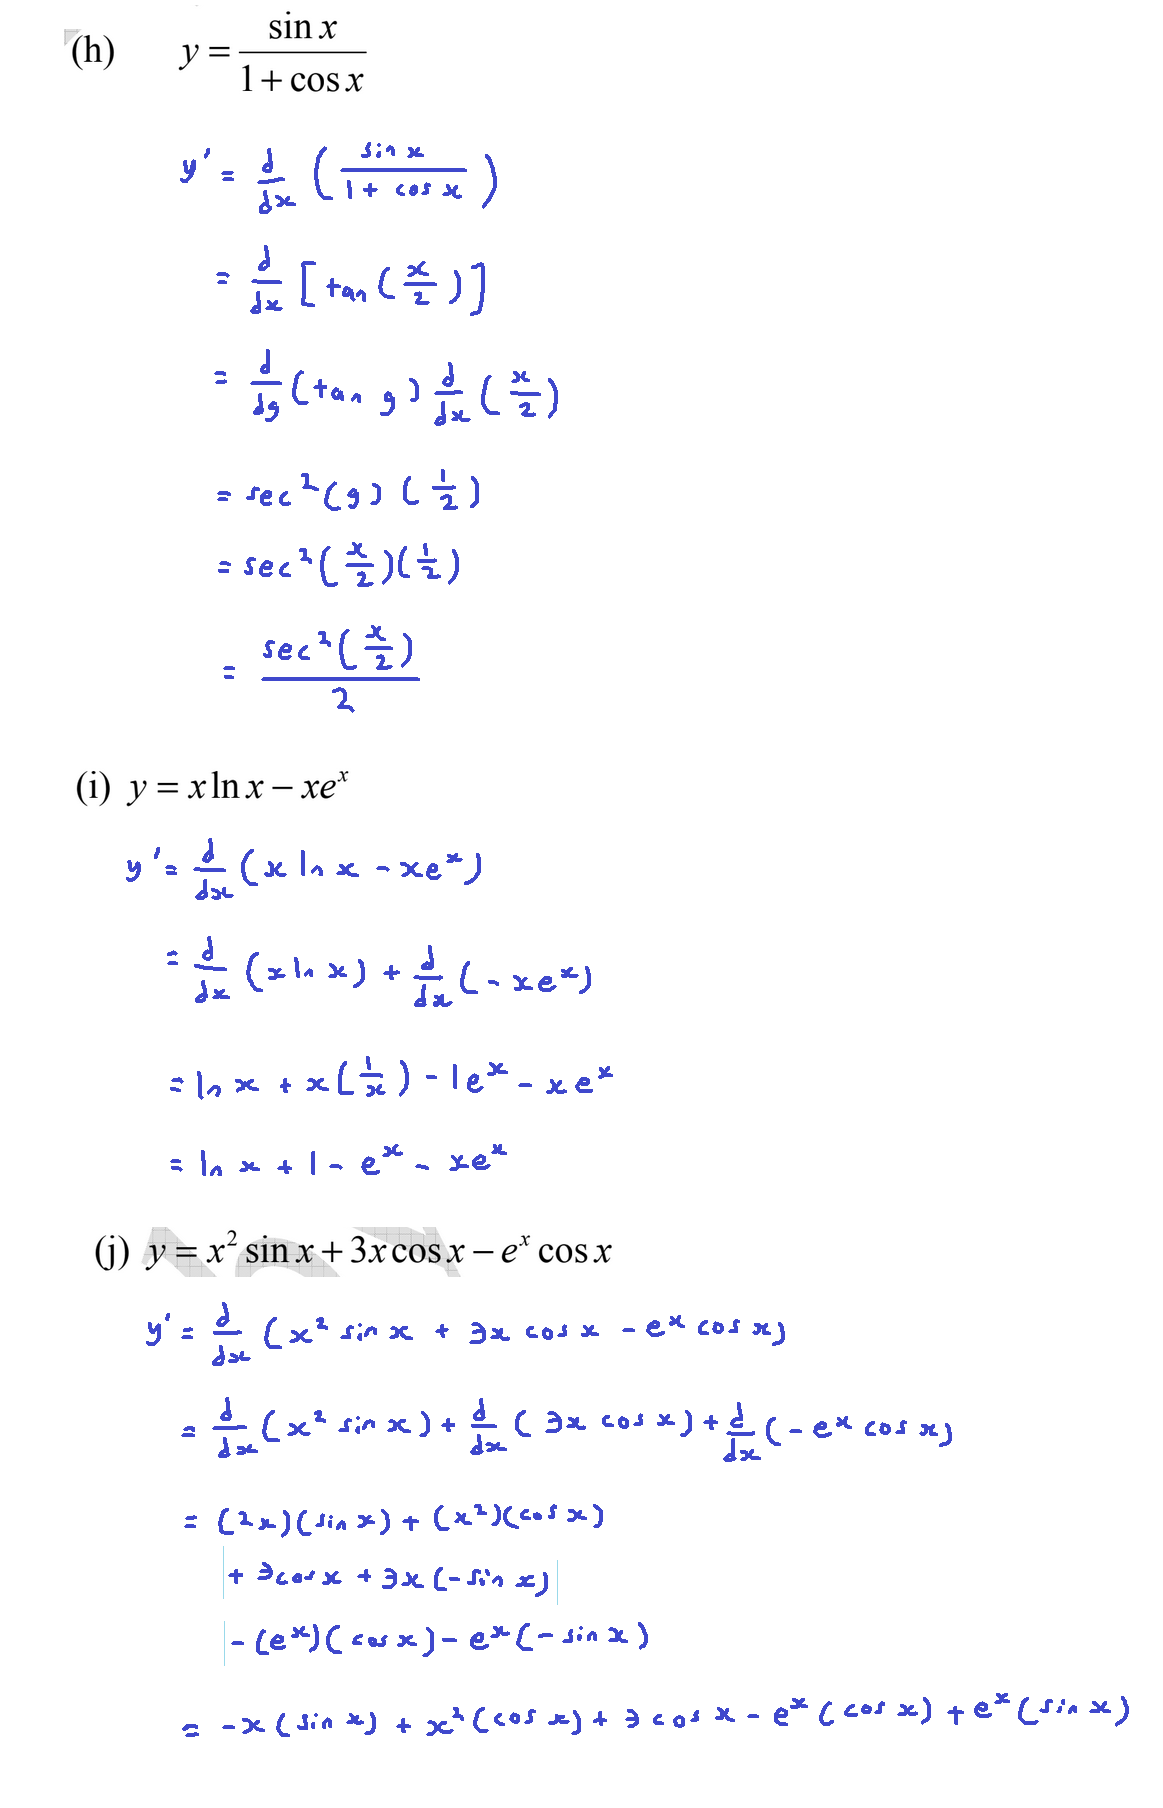 (h) y = sin x / (1 + cos x)
y' = d/dx ( sin x / (1 + cos x) )
= d/dx [ tan ( x/2 ) ]
= d/dg ( tan g ) d/dx ( x/2 )
= sec² (g) ( 1/2 )
= sec² ( x/2 ) ( 1/2 )
= sec² ( x/2 ) / 2
(i) y = x ln x − xeˣ
y' = d/dx ( x ln x − xeˣ )
= d/dx ( x ln x ) + d/dx ( − xeˣ )
= ln x + x ( 1/x ) − 1eˣ − xeˣ
= ln x + 1 − eˣ − xeˣ
(j) y = x² sin x + 3x cos x − eˣ cos x
y' = d/dx ( x² sin x + 3x cos x − eˣ cos x )
= d/dx ( x² sin x ) + d/dx ( 3x cos x ) + d/dx ( − eˣ cos x )
= (2x)(sin x) + (x²)(cos x)
+ 3cos x + 3x (− sin x)
− (eˣ)(cos x) − eˣ (− sin x)
= −x (sin x) + x² (cos x) + 3 cos x − eˣ (cos x) + eˣ (sin x)